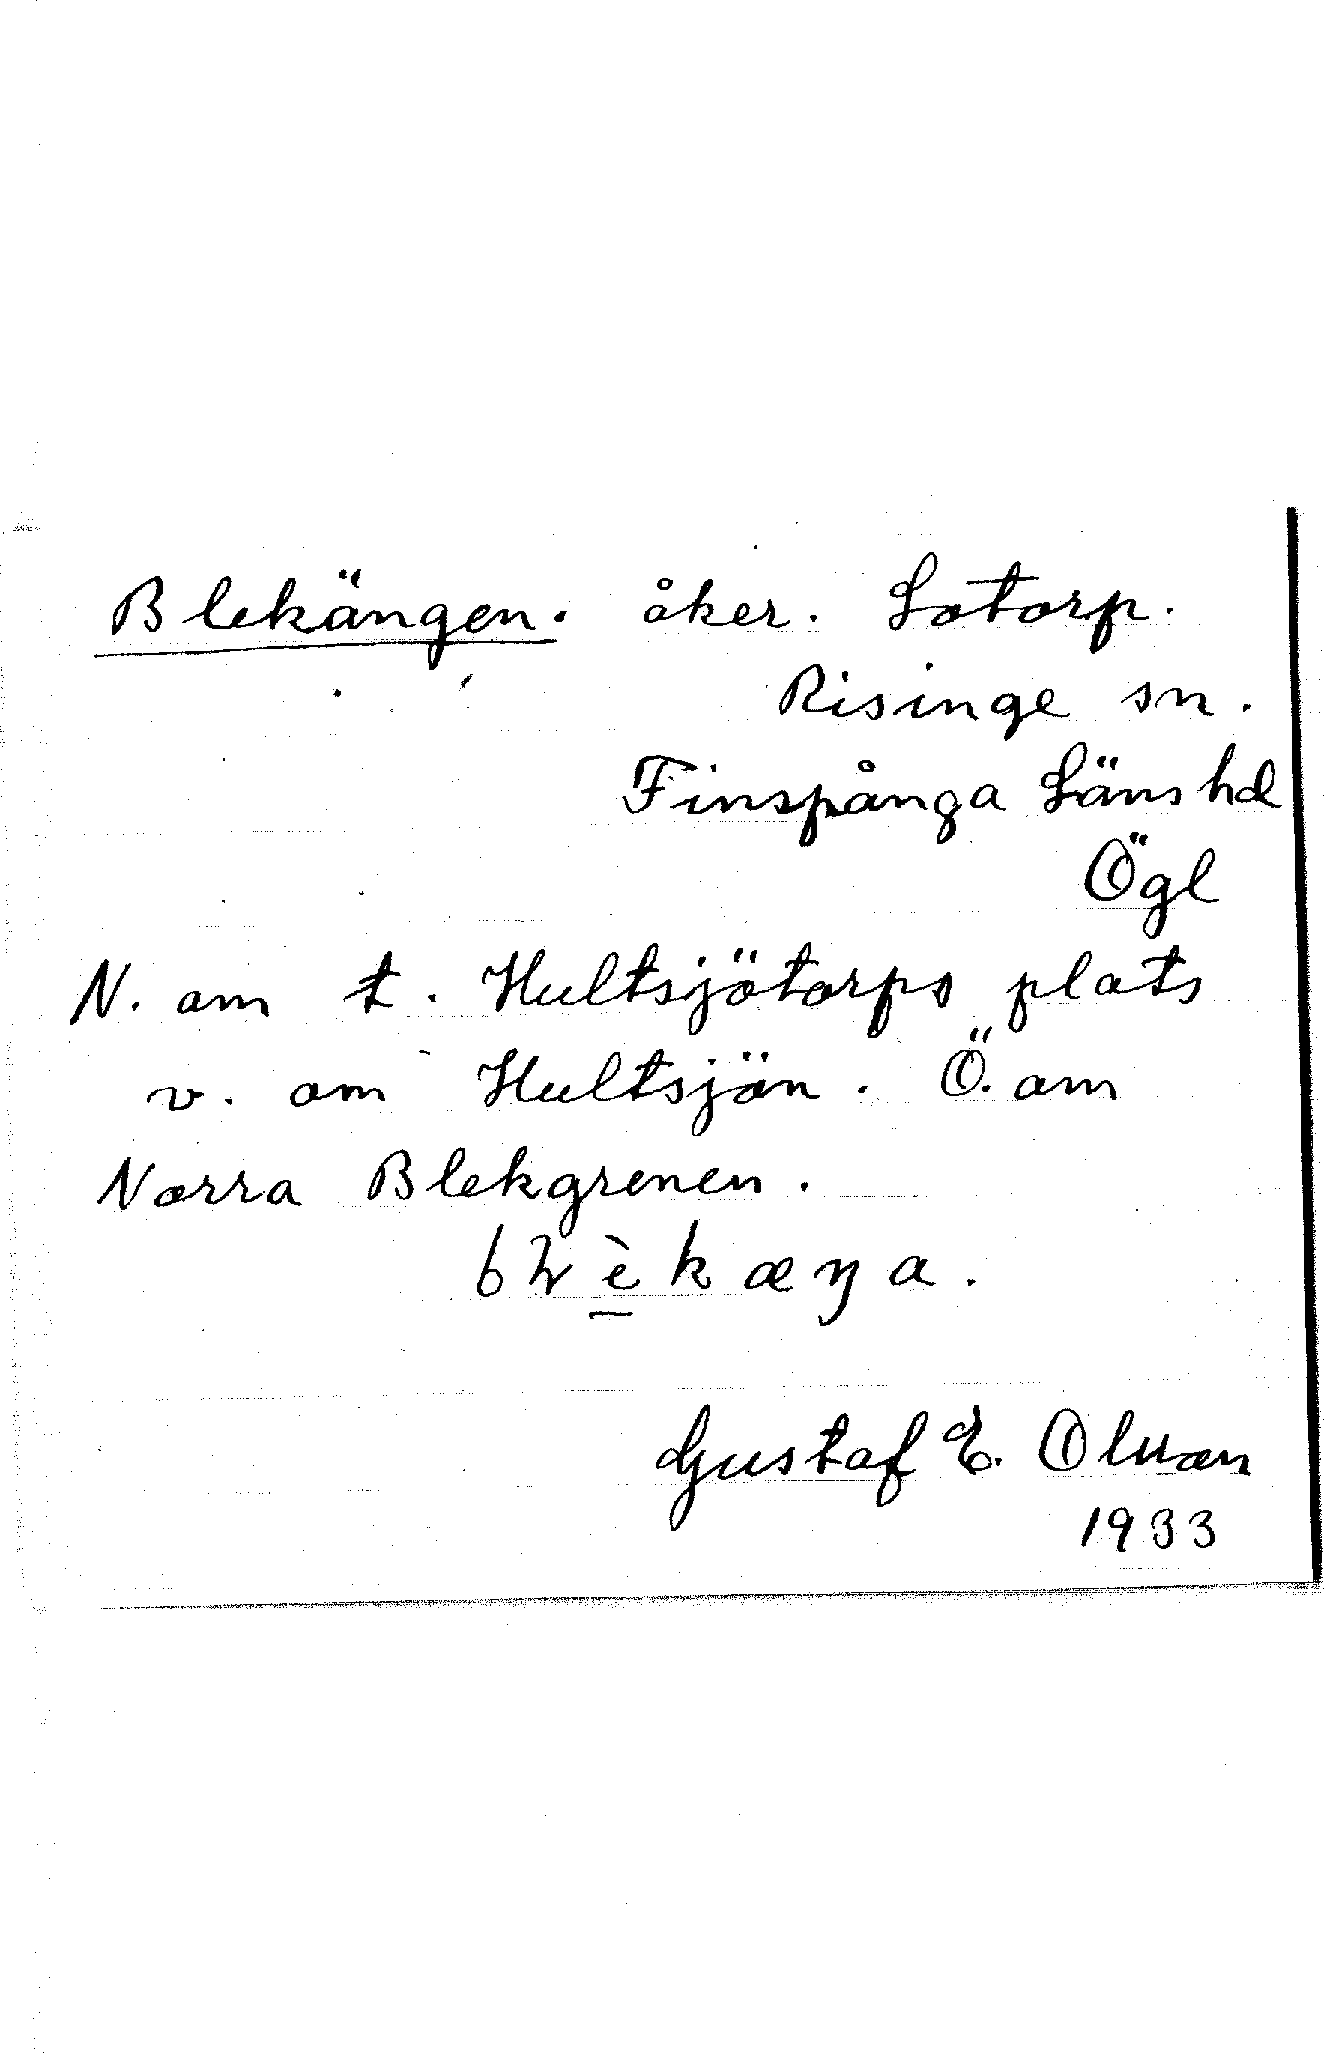 Blekängen. åker. Lotorp.
Risinge sn.
Finspånga Läns hd
Ögl
N. om t. Hultsjötorps plats
v. om Hultsjön. Ö. om
Norra Blekgrenen.
Gustaf E.
1933